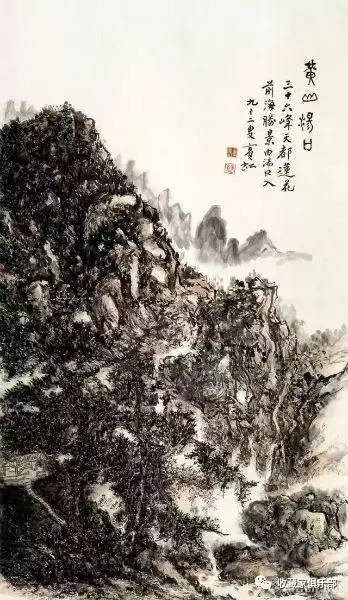 黄山汤口
三十六峰天都莲花
前海胜景由汤口入
九十二叟宾虹
收藏家俱乐部